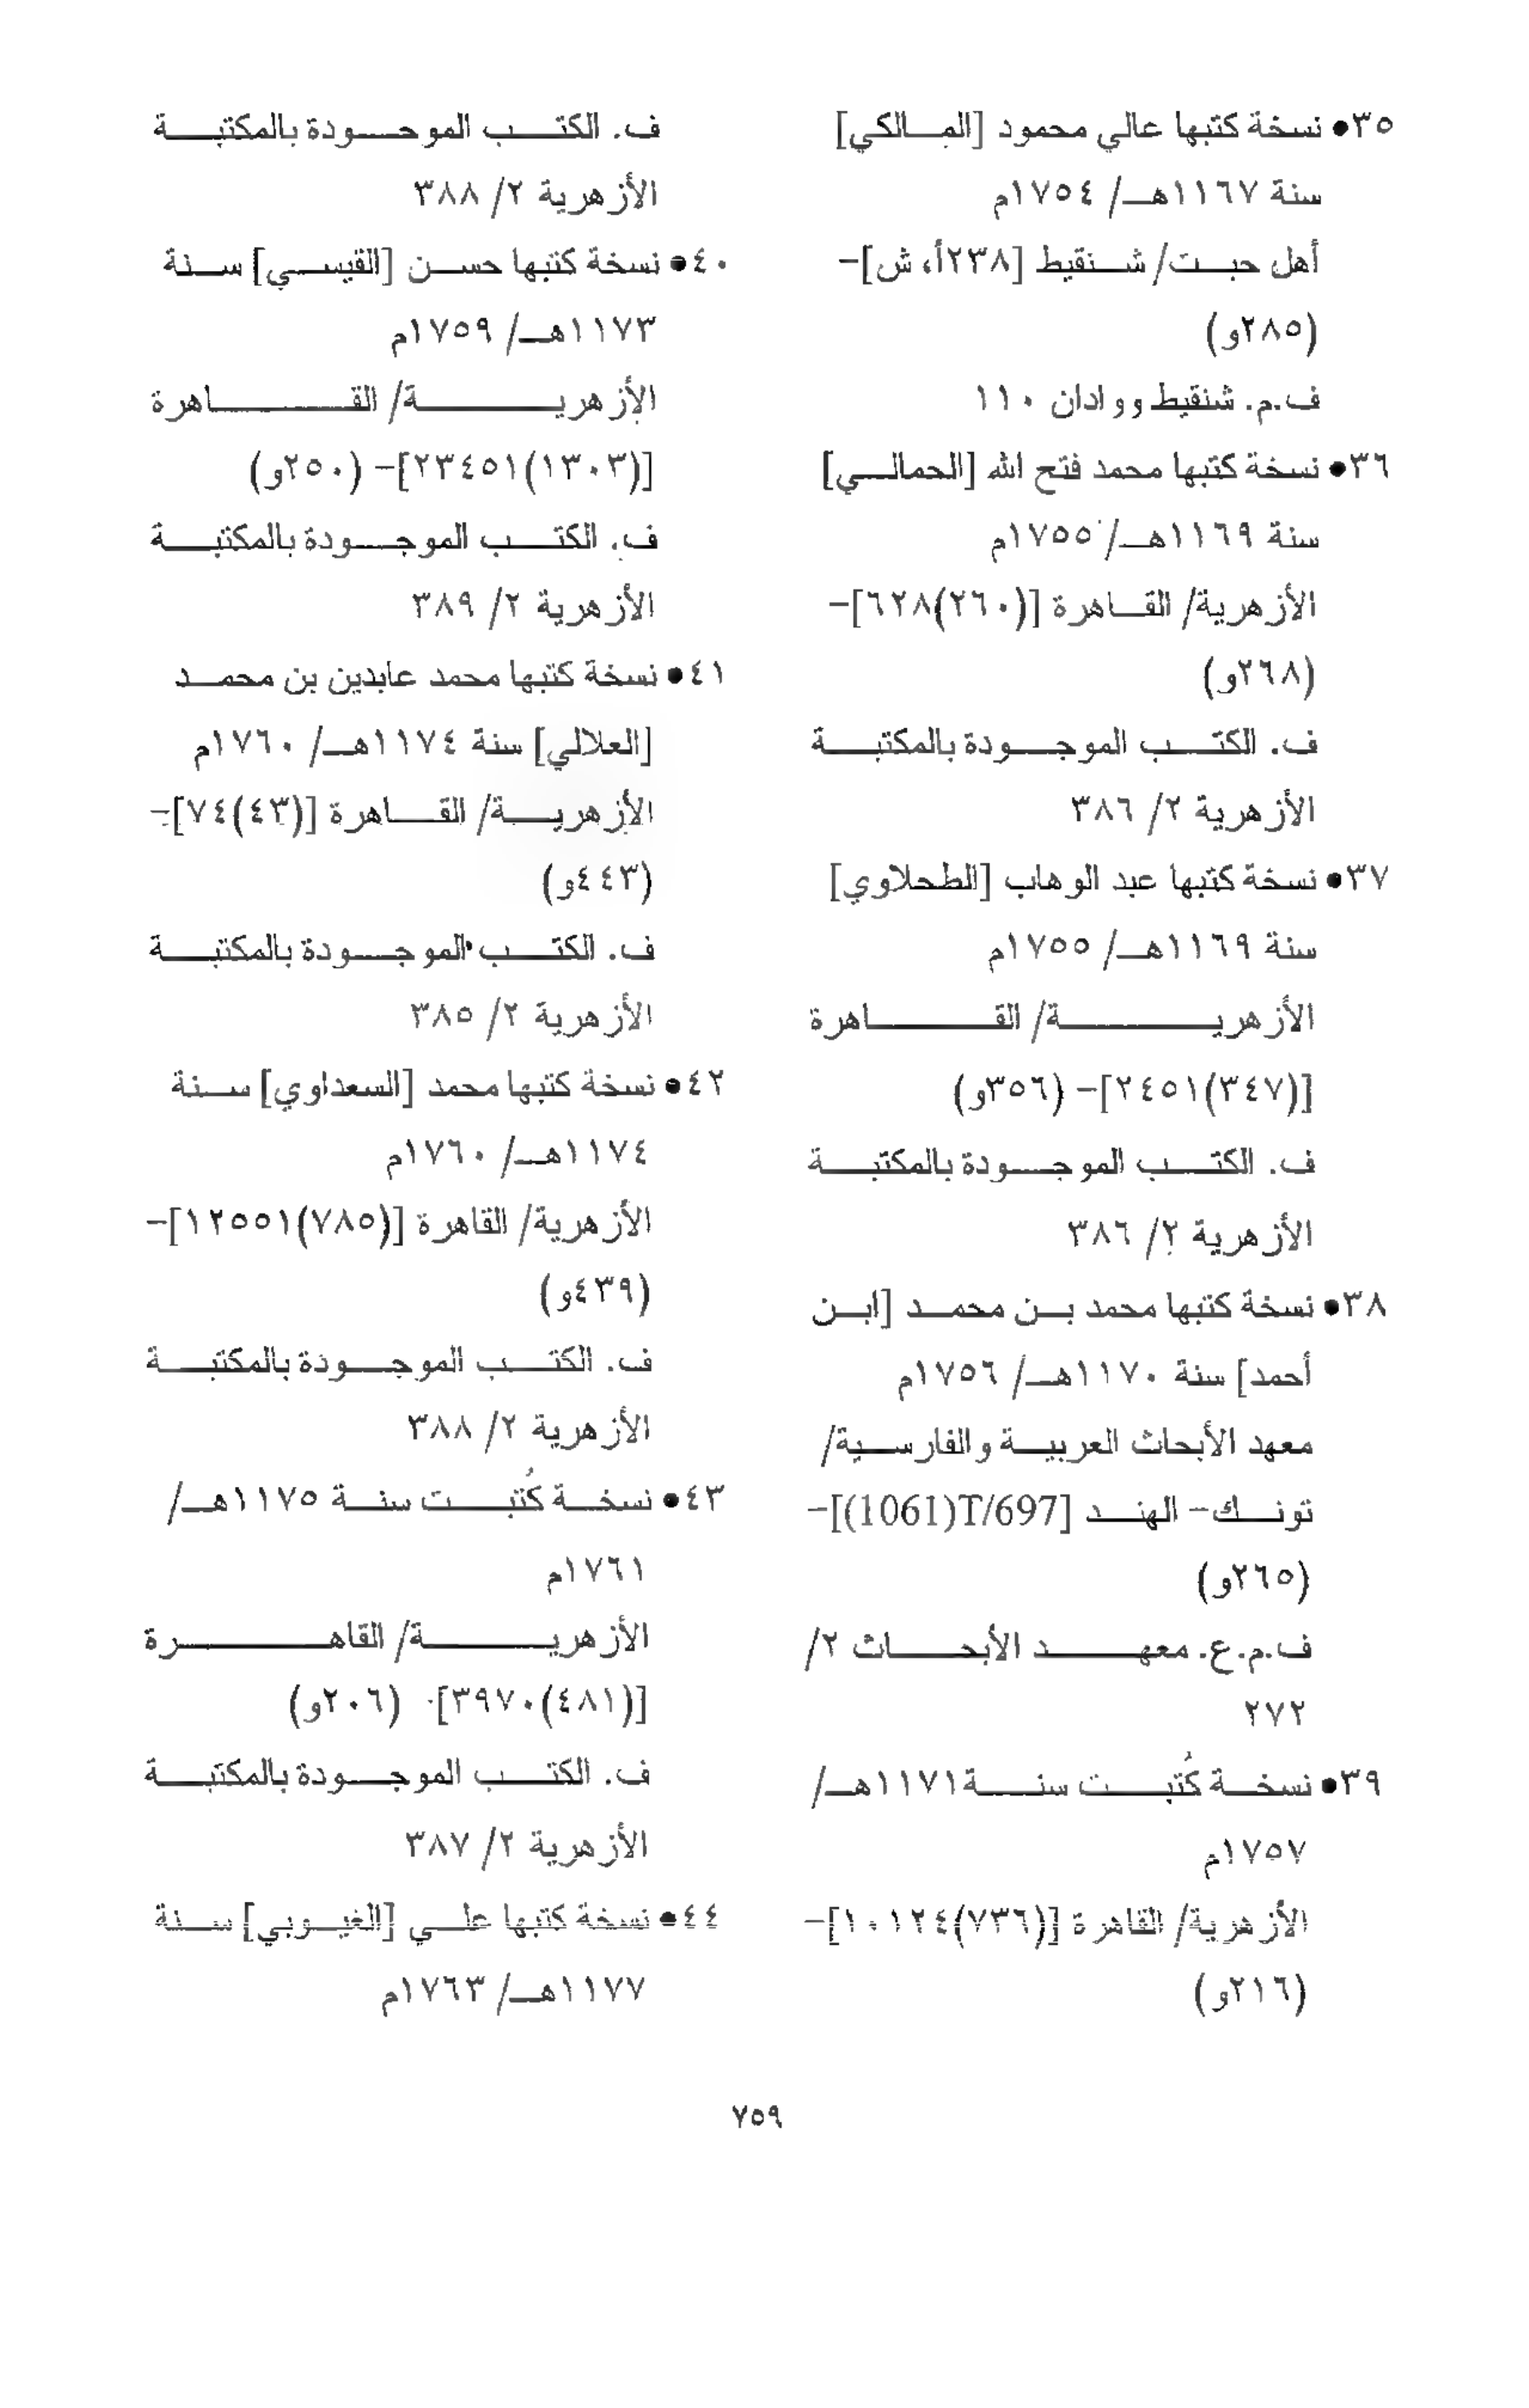 ٣٥• نسخة كتبها عالي محمود [المالكي]
سنة ١١٦٧هـ/ ١٧٥٤م
أهل حبت/ شنقيط [٢٣٨أ، ش]-
(٢٨٥و)
ف.م. شنقيط ووادان ١١٠
٣٦• نسخة كتبها محمد فتح الله [الحمالي]
سنة ١١٦٩هـ/ ١٧٥٥م
الأزهرية/ القاهرة [(٢٦٠)٦٢٨]-
(٢٦٨و)
ف. الكتب الموجودة بالمكتبة
الأزهرية ٢/ ٣٨٦
٣٧• نسخة كتبها عبد الوهاب [الطحلاوي]
سنة ١١٦٩هـ/ ١٧٥٥م
الأزهرية/ القاهرة
[(٣٤٧)٢٤٥١]- (٣٥٦و)
ف. الكتب الموجودة بالمكتبة
الأزهرية ٢/ ٣٨٦
٣٨• نسخة كتبها محمد بن محمد [ابن
أحمد] سنة ١١٧٠هـ/ ١٧٥٦م
معهد الأبحاث العربية والفارسية/
تونك- الهند [T/697(1061)]-
(٢٦٥و)
ف.م.ع. معهد الأبحاث ٢/
٢٧٢
٣٩• نسخة كُتبت سنة١١٧١هـ/
١٧٥٧م
الأزهرية/ القاهرة [(٧٣٦)١٠١٢٤]-
(٢١٦و)
ف. الكتب الموجودة بالمكتبة
الأزهرية ٢/ ٣٨٨
٤٠• نسخة كتبها حسن [القيسي] سنة
١١٧٣هـ/ ١٧٥٩م
الأزهرية/ القاهرة
[(١٣٠٣)٢٣٤٥١]- (٢٥٠و)
ف. الكتب الموجودة بالمكتبة
الأزهرية ٢/ ٣٨٩
٤١• نسخة كتبها محمد عابدين بن محمد
[العلالي] سنة ١١٧٤هـ/ ١٧٦٠م
الأزهرية/ القاهرة [(٤٣)٧٤]-
(٤٤٣و)
ف. الكتب الموجودة بالمكتبة
الأزهرية ٢/ ٣٨٥
٤٢• نسخة كتبها محمد [السعداوي] سنة
١١٧٤هـ/ ١٧٦٠م
الأزهرية/ القاهرة [(٧٨٥)١٢٥٥١]-
(٤٣٩و)
ف. الكتب الموجودة بالمكتبة
الأزهرية ٢/ ٣٨٨
٤٣• نسخة كُتبت سنة ١١٧٥هـ/
١٧٦١م
الأزهرية/ القاهرة
[(٤٨١)٣٩٧٠]- (٢٠٦و)
ف. الكتب الموجودة بالمكتبة
الأزهرية ٢/ ٣٨٧
٤٤• نسخة كتبها علي [الغيوبي] سنة
١١٧٧هـ/ ١٧٦٣م
٧٥٩